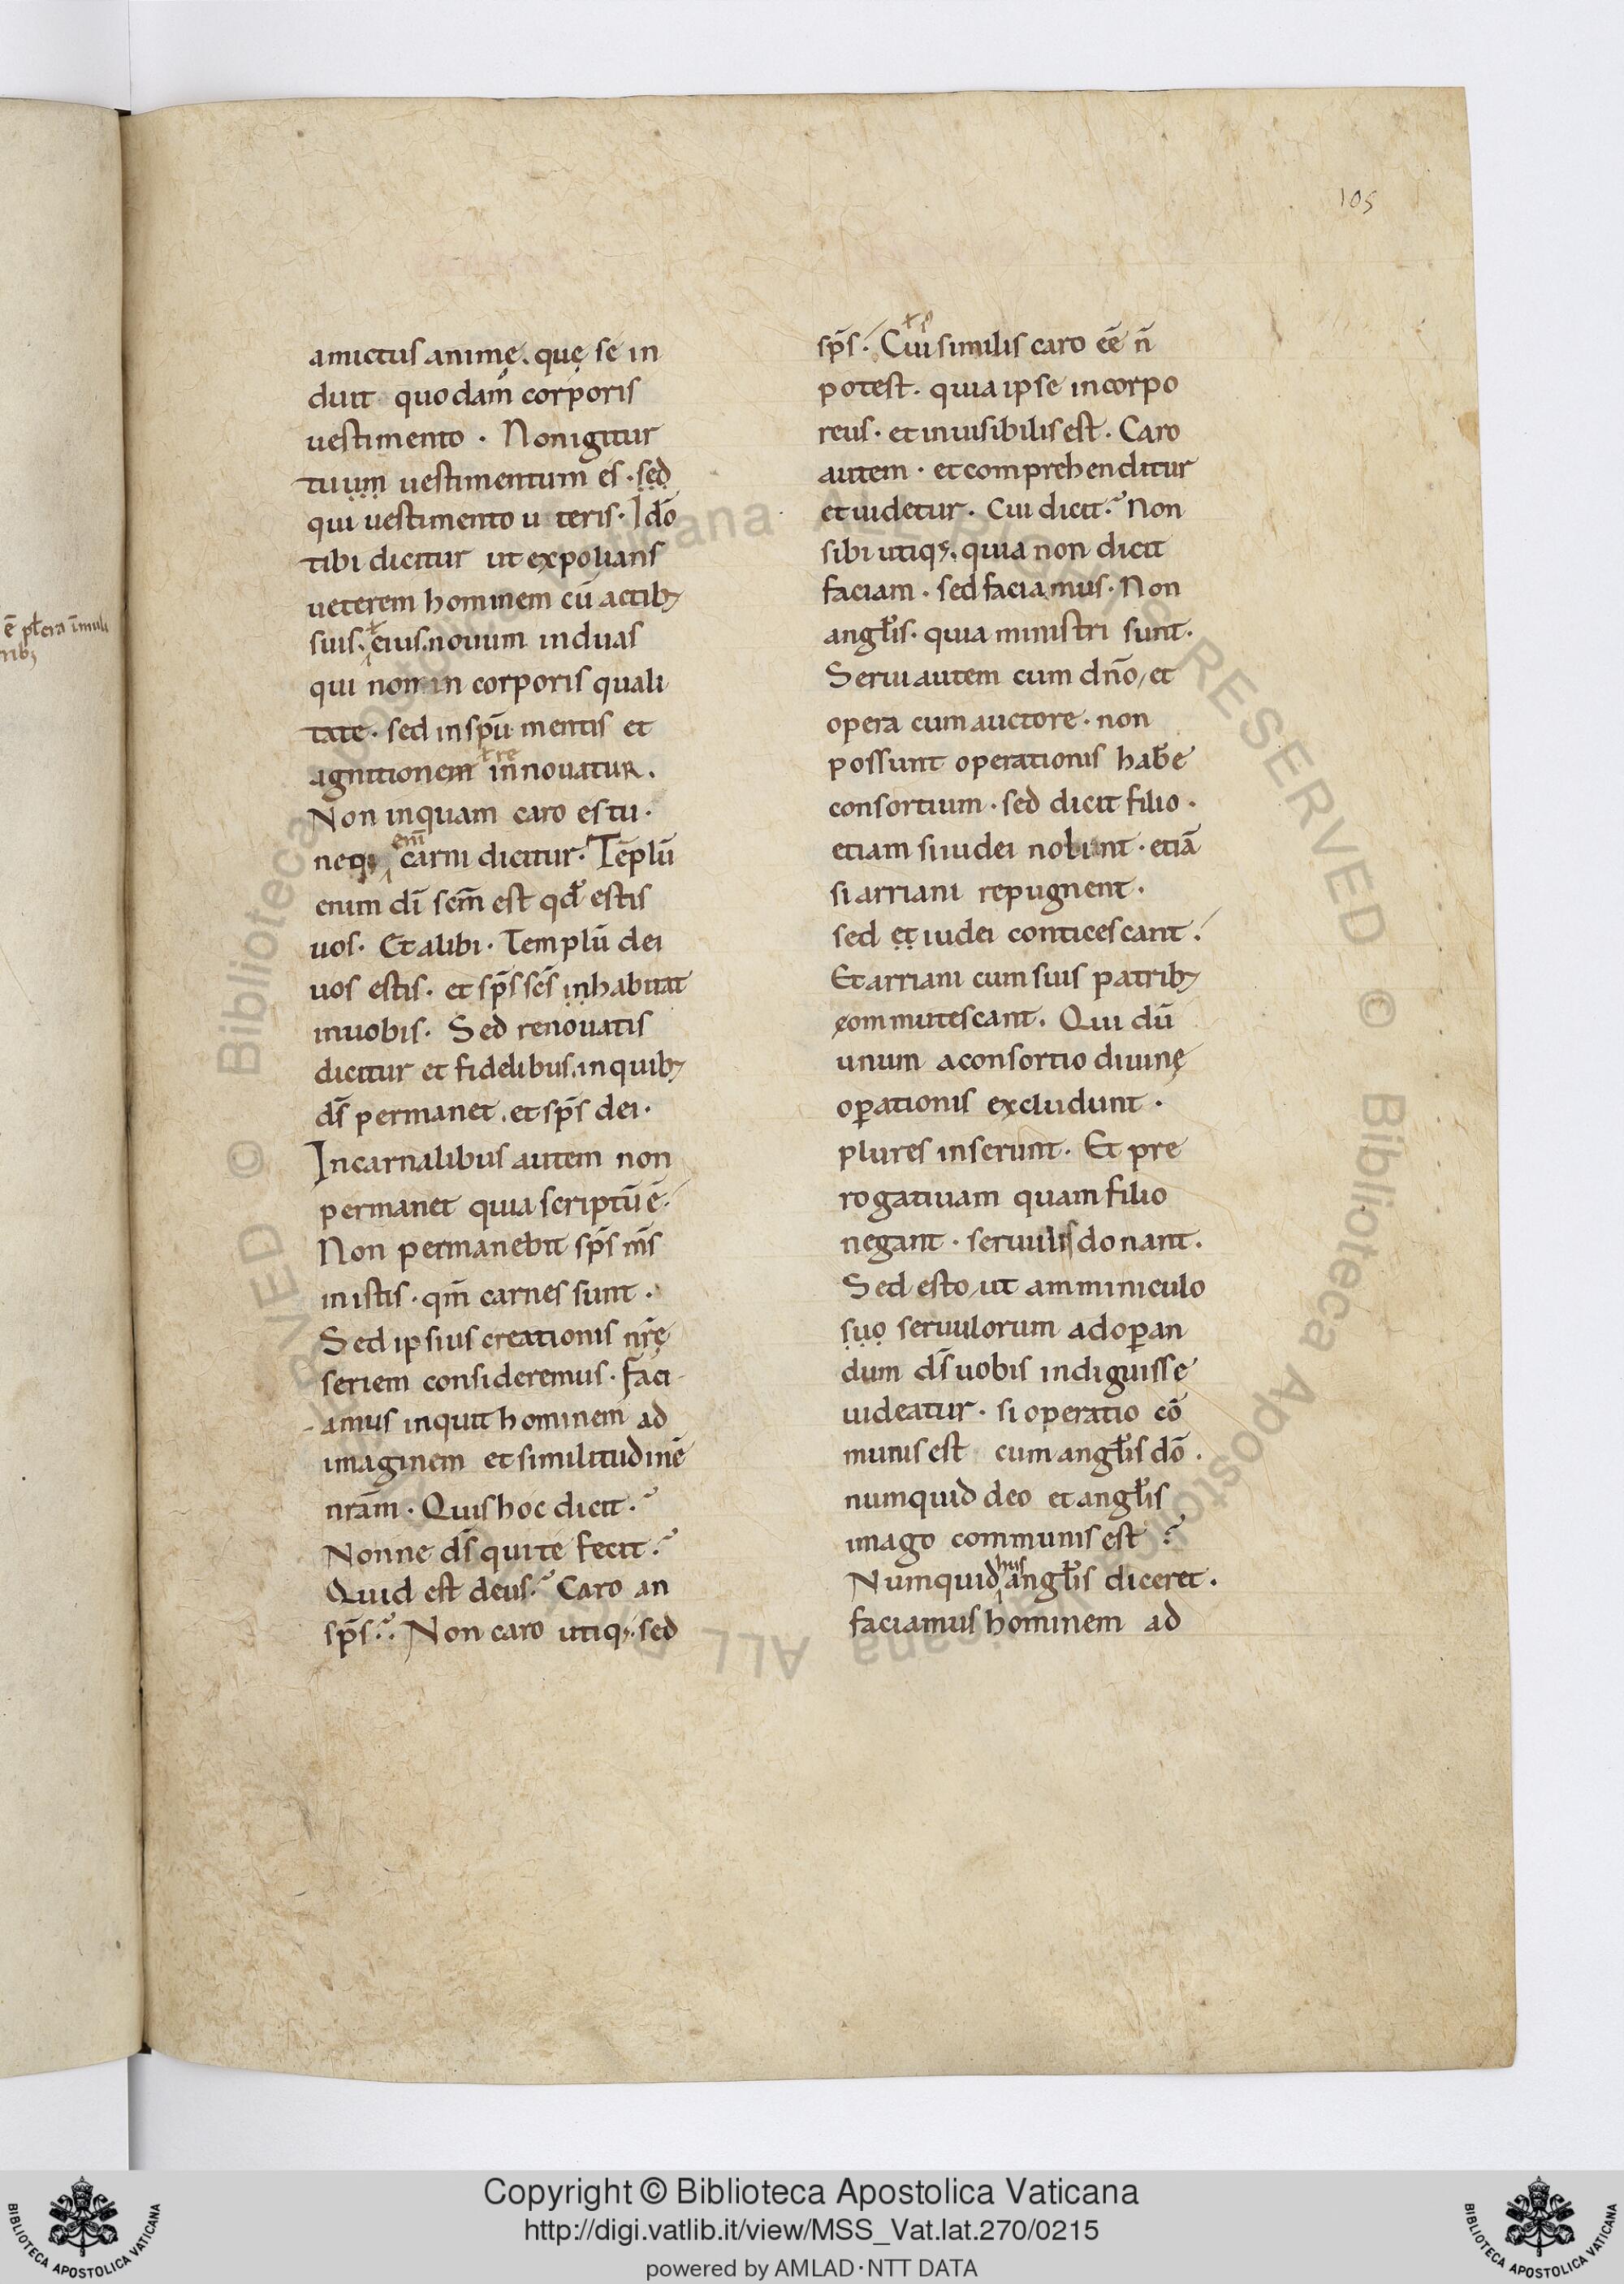 105
ē pt̃era ĩmuli
rib;
amictus animę. quę se in
duit quodam̃ corporis
uestimento · Non igitur
tuum uestimentum es · sed
qui uestimento uteris · Idõ
tibi dicitur ut expolians
ueterem hominem cũ actib;
suis. eius. nouum induas
qui non in corporis quali
tate · sed in sp̃u mentis et
agnitionem innouatur.
Non inquam caro es tu ·
neq; em̃ carni dicitur · Tẽplũ
enim dĩ sc̃m est qđ estis
uos · Et alibi · Templũ dei
uos estis · et sp̃s sc̃s inhabitat
in uobis · Sed renouatis
dicitur et fidelibus. in quib;
ds̃ permanet. et sp̃s dei ·
In carnalibus autem non
permanet quia scriptũ ẽ ·
Non permanebit sp̃s m̃s
in istis · qm̃ carnes sunt ·
Sed ipsius creationis nr̃ę
seriem consideremus · faci-
amus inquit hominem ad
imaginem et similitudinẽ
nrãm · Quis hoc dicit ·?
Nonne ds̃ qui te fecit ·?
Quid est deus ·? Caro an
sp̃s ·? Non caro utiq; · sed
sp̃s · Cui similis caro eẽ ñ
potest · quia ipse incorpo
reus · et inuisibilis est · Caro
autem · et comprehenditur
et uidetur · Cui dicit ·? Non
sibi utiq;. quia non dicit
faciam · sed faciamus · Non
angłis · quia ministri sunt ·
Serui autem cum dño, et
opera cum auctore · non
possunt operationis hab̃e
consortium · sed dicit filio ·
etiam si iudei nolunt · etiã
si arriani repugnent ·
sed et iudei conticescant ·
Et arriani cum suis patrib;
commutescant. Qui dũ
unum a consortio diuinę
op̃ationis excludunt ·
plures inserunt · Et pre
rogatiuam quam filio
negant · seruulis donant.
Sed esto, ut amminiculo
suo seruulorum ad op̃an
dum ds̃ uobis indiguisse
uideatur · si operatio cõ
munis est cum angłis dõ ·
numquid deo et angłis
imago communis est ·?
Numquid hus angłis diceret ·
faciamus hominem ad
Copyright © Biblioteca Apostolica Vaticana
http://digi.vatlib.it/view/MSS_Vat.lat.270/0215
powered by AMLAD·NTT DATA
BIBLIOTECA APOSTOLICA VATICANA
BIBLIOTECA APOSTOLICA VATICANA